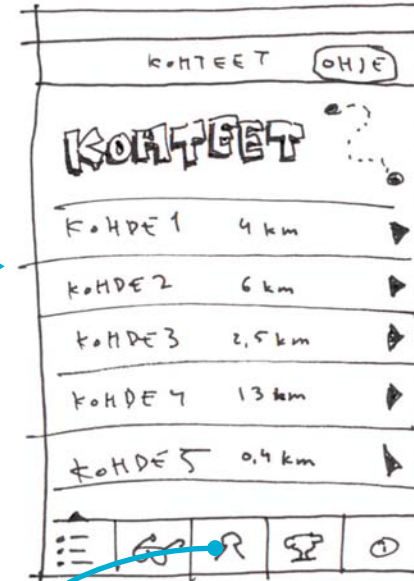 KOHTEET OHJE
KOHTEET
KOHDE 1 4 km
KOHDE 2 6 km
KOHDE 3 2,5 km
KOHDE 4 13 km
KOHDE 5 0,4 km